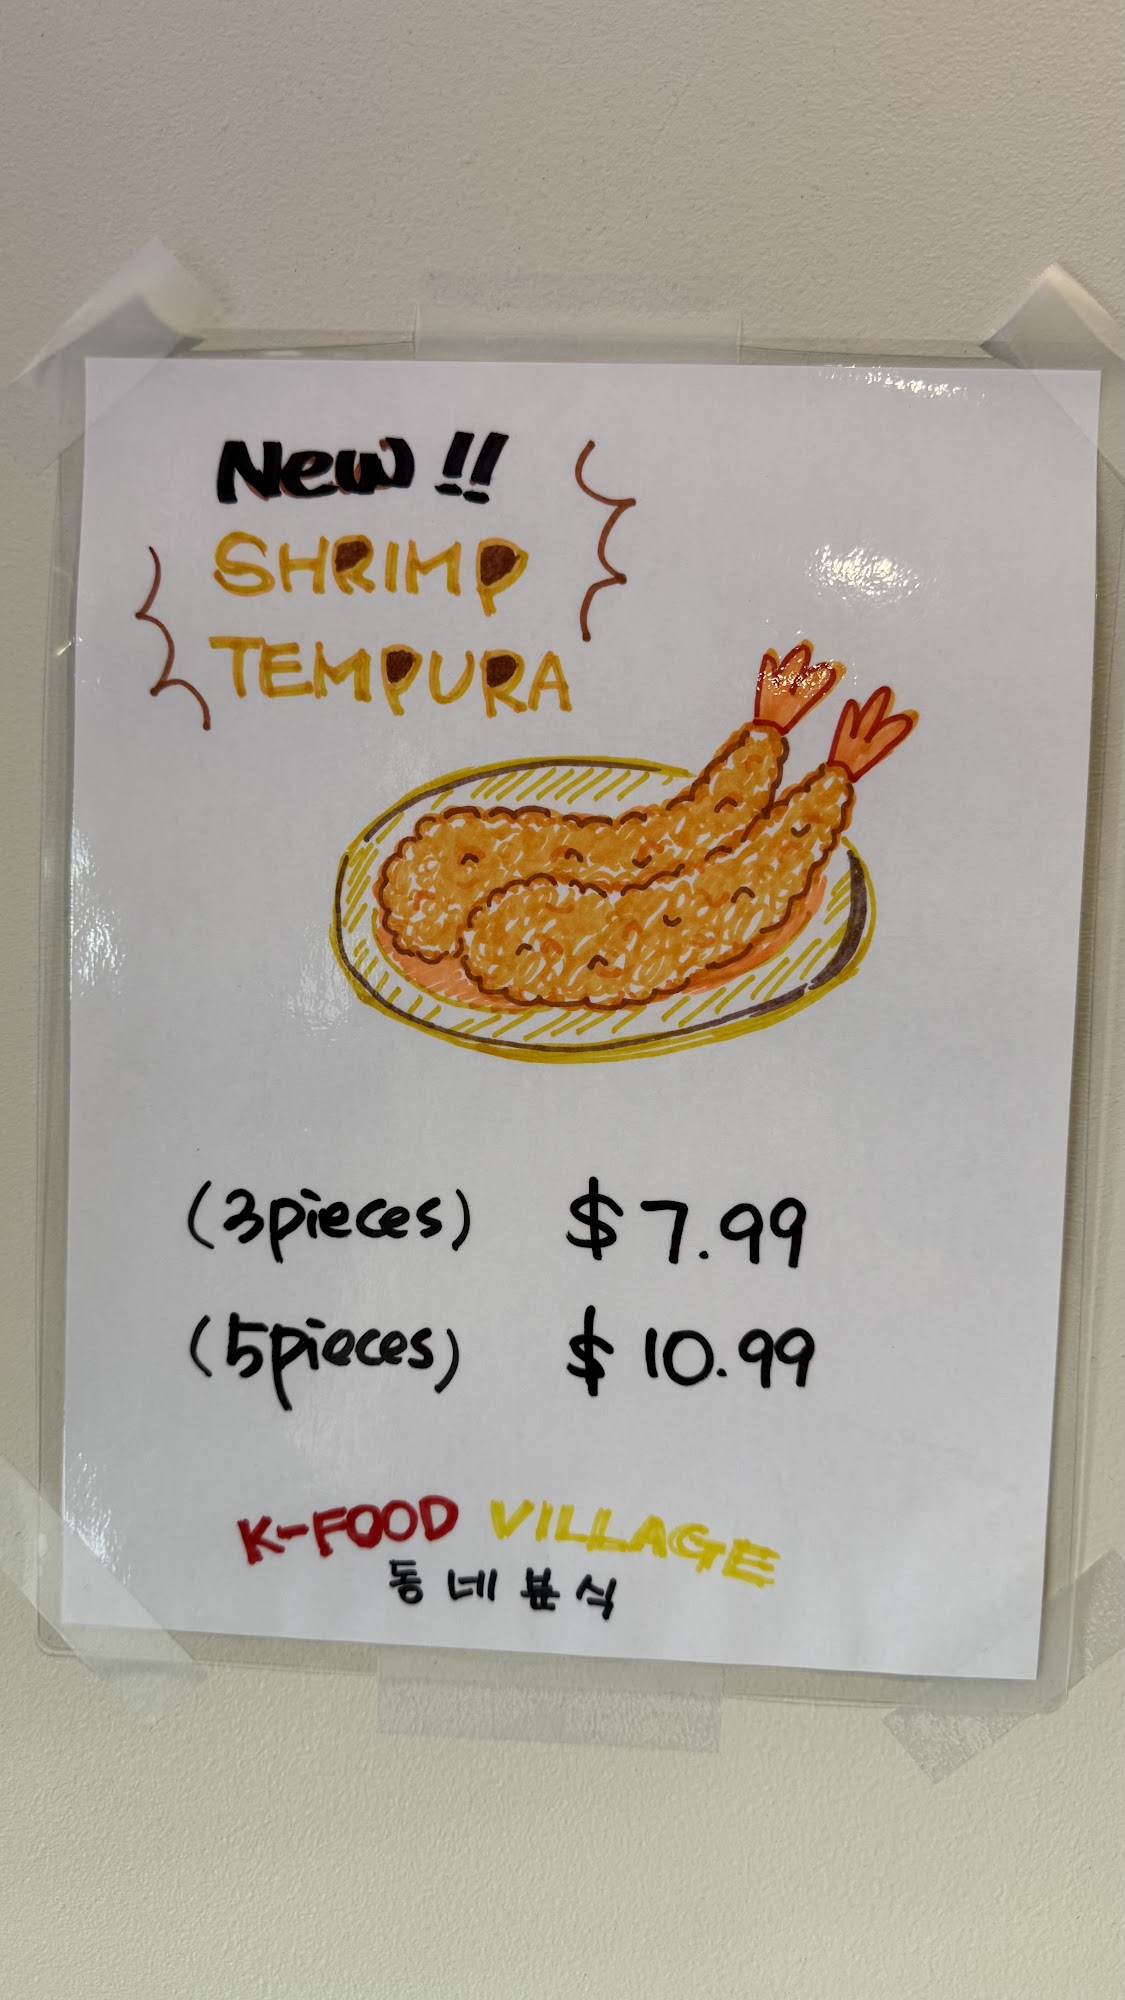 New!!
SHRIMP
TEMPURA
(3pieces) $7.99
(5pieces) $10.99
K-FOOD VILLAGE
동네분식